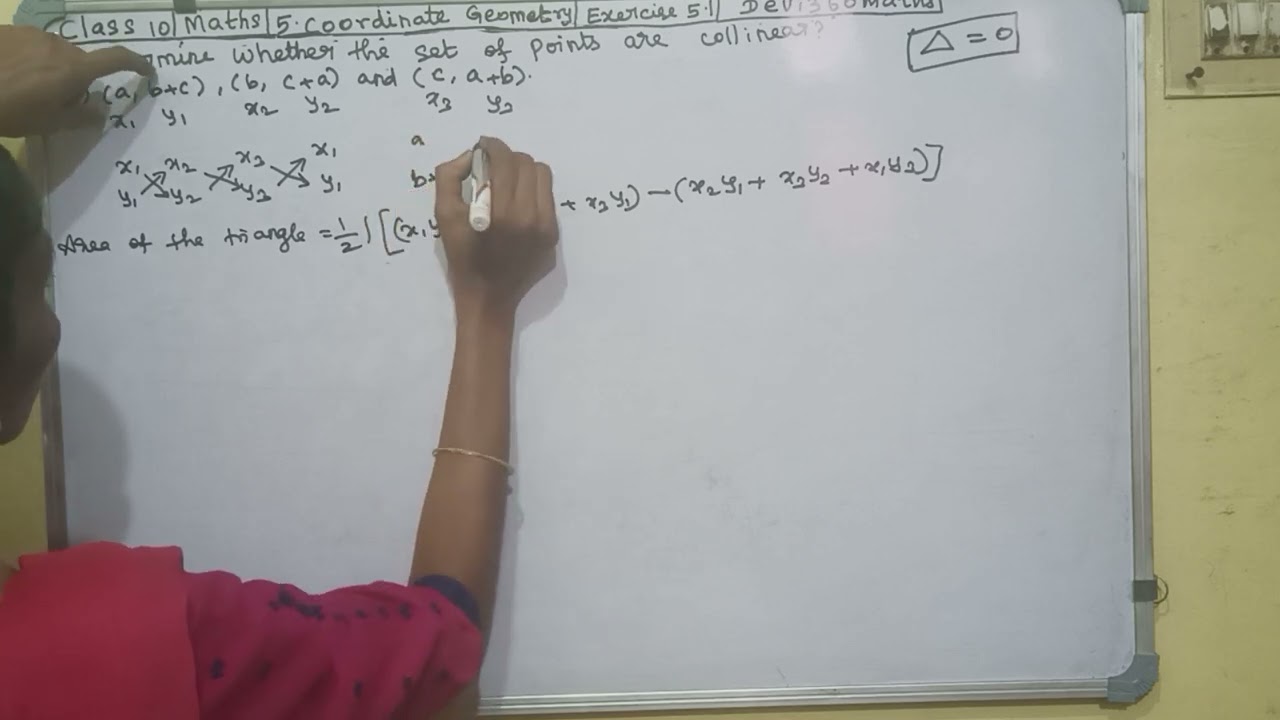 Class 10 | Maths | 5. Coordinate Geometry | Exercise 5.1 | Devi360maths
mine whether the set of points are collinear?
(a, b+c), (b, c+a) and (c, a+b).
Δ = 0
x₁ y₁ x₂ y₂ x₃ y₃
x₁ x₂ x₃ x₁ a
y₁ y₂ y₃ y₁ b+
Area of the triangle = 1/2 | [(x₁y + x₃y₁) – (x₂y₁ + x₃y₂ + x₁y₃)]